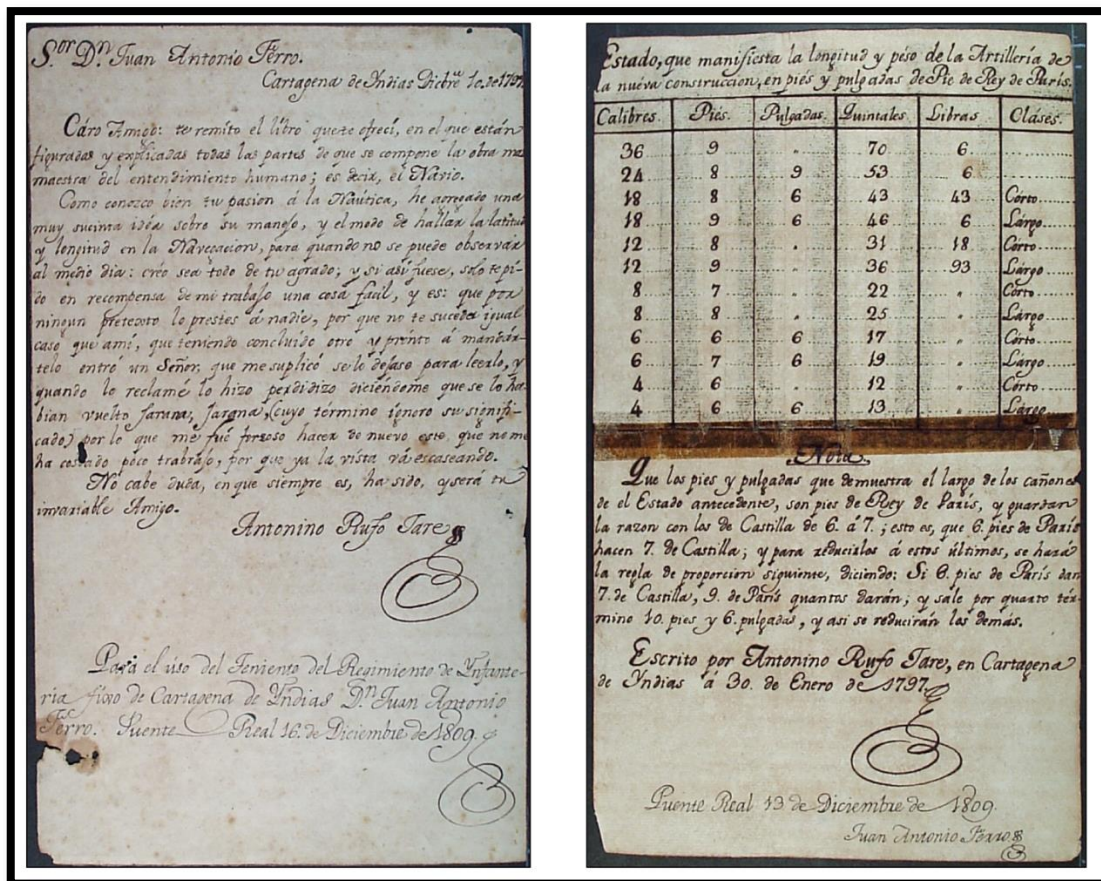 S.or D.n Juan Antonio Ferro.
Cartagena de Yndias Dicbre 10. de
Cáro Amigo: te remito el libro que te ofrecí, en el que están
figuradas y explicadas todas las partes de que se compone la obra mas
maestra del entendimiento humano; es decir, el Navio.
Como conozco bien tu pasion á la Náutica, he agregado una
muy sucinta idéa sobre su manejo, y el modo de hallar la latitud
y longitud en la Návegacion, para quando no se puede observar
al médio dia: créo sea todo de tu agrado; y si asi fuese, solo te pí-
do en recompensa de mi trabajo una cosa fácil, y es: que por
ningun pretexto lo prestes á nadie, por que no te suceda igual
caso que ami, que teniendo concluido otro y pronto á mandár-
telo entró un Señor, que me suplicó se lo dejase para leerlo, y
quando lo reclamé lo hizo perdidizo diciéndome que se lo ha-
bian vuelto farana, fargna, (cuyo término ignoro su signifi-
cado) por lo que me fué forzoso hacer de nuevo este, que no me
ha costado póco trabrajo, por que ya la vista vá escaseando.
No cabe duda, en que siempre es, ha sido, y será tu
invariable Amigo.
Antonino Rufo Tare
Para el uso del Teniente del Regimiento de Ynfante-
ria fixo de Cartagena de Yndias D.n Juan Antonio
Ferro. Puente Real 16. de Diciembre de 1809.
Estado, que manifiesta la longitud y péso de la Artilleria de
la nueva construccion, en piés y pulgadas de Pie de Rey de París.
Calibres. Piés. Pulgadas. Quintales. Libras. Cláses.
36 9 " 70 6
24 8 9 53 6
18 8 6 43 43 Córto
18 9 6 46 6 Lárgo
12 8 " 31 18 Córto
12 9 " 36 93 Lárgo
8 7 " 22 " Córto
8 8 " 25 " Lárgo
6 6 6 17 " Córto
6 7 6 19 " Largo
4 6 " 12 " Córto
4 6 6 13 " Lárgo
Nota.
Que los pies y pulgadas que demuestra el largo de los cañones
de el Estado antecedente, son pies de Rey de París, y guardan
la razon con los de Castilla de 6. á 7.; esto es, que 6. pies de París
hacen 7. de Castilla; y para reducirlos á estos últimos, se hará
la regla de proporcion siguiente, diciendo: Si 6. pies de París dan
7. de Castilla, 9. de París quantos darán; y sale por quarto tér-
mino 10. pies y 6. pulgadas, y asi se reducirán los demás.
Escrito por Antonino Rufo Tare, en Cartagena
de Yndias á 30. de Enero de 1797
Puente Real 13 de Diciembre de 1809.
Juan Antonio Ferro.